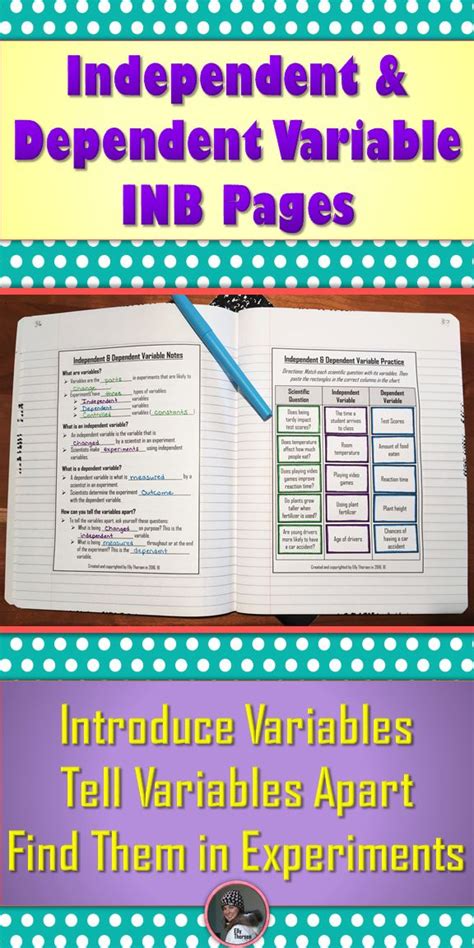 Independent &
Dependent Variable
INB Pages
36
37
Independent & Dependent Variable Notes
What are variables?
Variables are the parts in experiments that are likely to
change.
Experiments have three types of variables
Independent variables
Dependent variables
Controlled variables ( constants )
What is an independent variable?
An independent variable is the variable that is
changed by a scientist in an experiment.
Scientists make experiments using independent
variables.
What is a dependent variable?
A dependent variable is what is measured by a
scientist in an experiment.
Scientists determine the experiment outcome
with the dependent variable.
How can you tell the variables apart?
To tell the variables apart, ask yourself these questions:
What is being changed on purpose? This is the
independent variable.
What is being measured throughout or at the end
of the experiment? This is the dependent variable.
Created and copyrighted by Elly Thorsen in 2016, 18
Independent & Dependent Variable Practice
Directions: Match each scientific question with its variables. Then
paste the rectangles in the correct columns in the chart.
Scientific
Question
Independent
Variable
Dependent
Variable
Does being
tardy impact
test scores?
The time a
student arrives
to class
Test Scores
Does temperature
affect how much
people eat?
Room
temperature
Amount of food
eaten
Does playing video
games improve
reaction time?
Playing video
games
Reaction time
Do plants grow
taller when
fertilizer is used?
Using plant
fertilizer
Plant height
Are young drivers
more likely to have
a car accident?
Age of drivers
Chances of
having a car
accident
Created and copyrighted by Elly Thorsen in 2016, 18
Introduce Variables
Tell Variables Apart
Find Them in Experiments
Elly
Thorsen